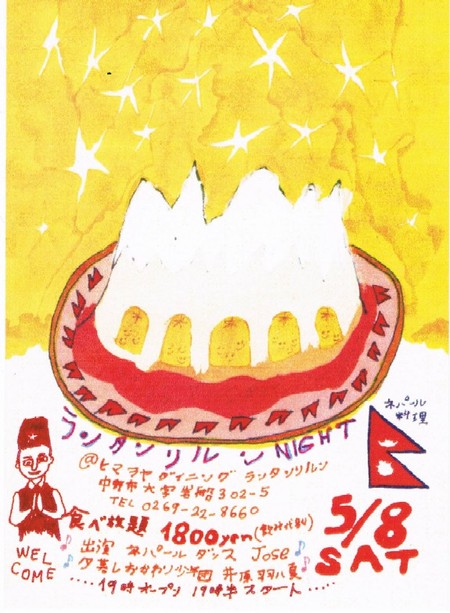 ランタンリルン NIGHT
ネパール
料理
@ヒマラヤダイニング ランタンリルン
中野市大字岩船302-5
TEL 0269-22-8660
食べ放題 1800yen(飲み代別)
5/8
SAT
WEL
COME
出演 ネパールダンス Jose
夕暮しおかわり少年団 井原羽八夏
....19時オープン 19時半スタート....